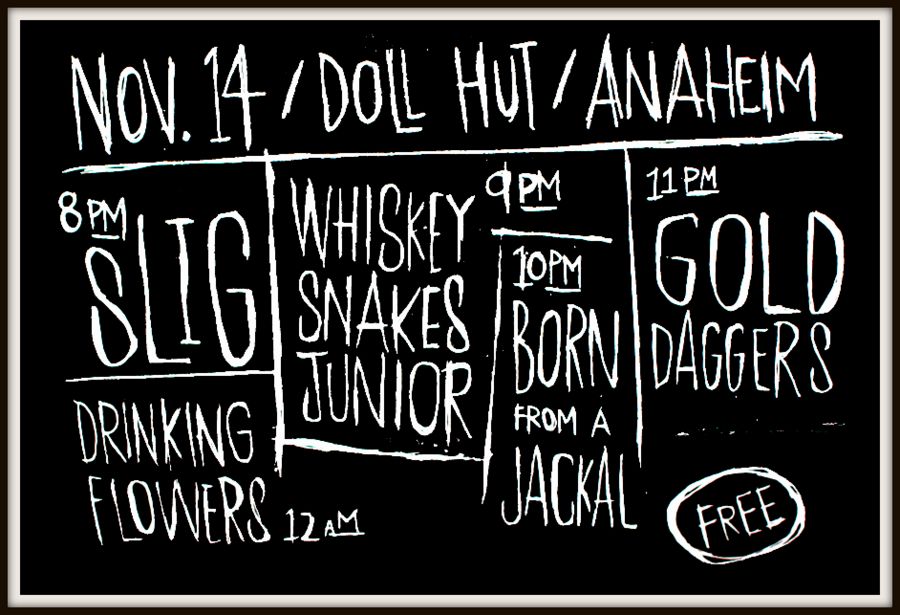 NOV. 14 / DOLL HUT / ANAHEIM
8 PM
SLIG
WHISKEY
SNAKES
JUNIOR
9 PM
10 PM
BORN
FROM A
JACKAL
11 PM
GOLD
DAGGERS
DRINKING
FLOWERS 12 AM
FREE